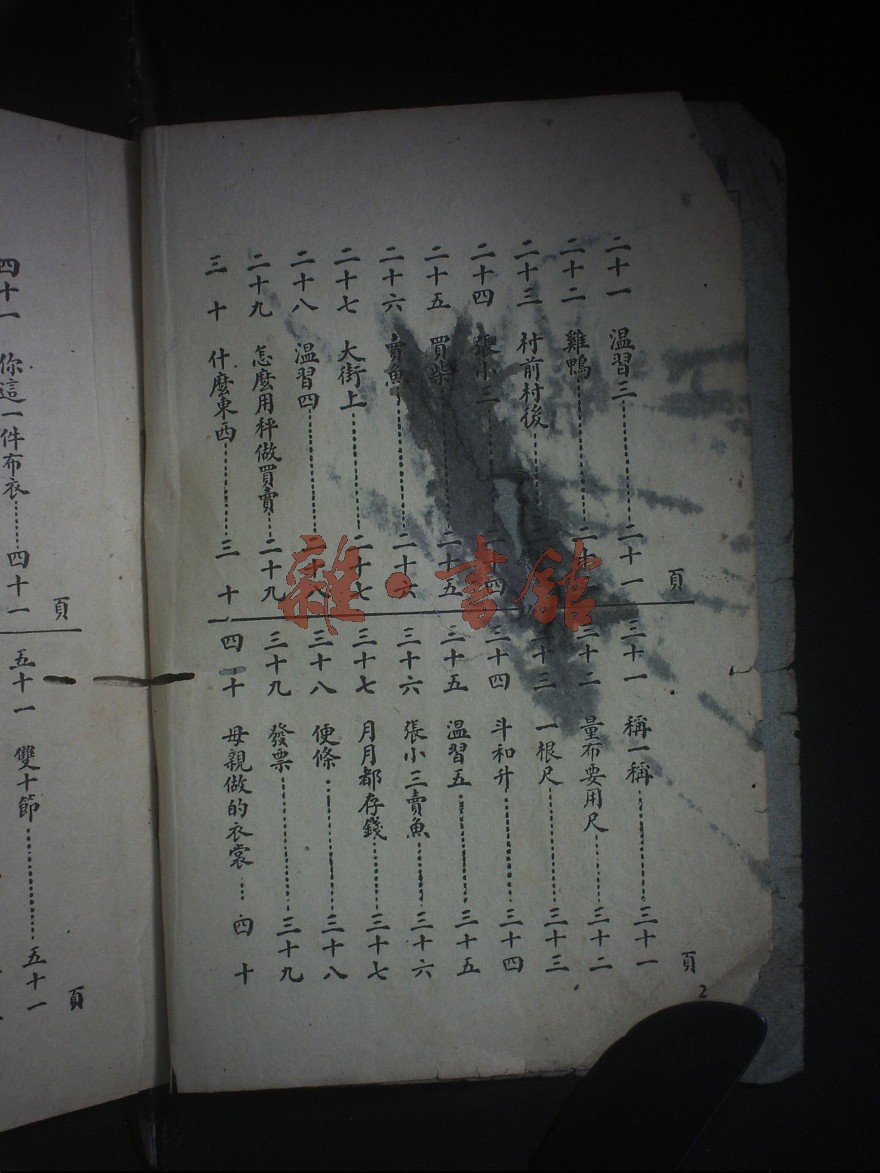 頁
二十一 温習三……二十一
二十二 雞鴨……二十
二十三 村前村後……
二十四 張小三……四
二十五 買柴……二十五
二十六 賣魚……二十六
二十七 大街上……二十七
二十八 温習四……二十八
二十九 怎麼用秤做買賣……二十九
三十 什麼東西……三十
頁
三十一 稱一稱……三十一
三十二 量布要用尺……三十二
三十三 一根尺……三十三
三十四 斗和升……三十四
三十五 温習五……三十五
三十六 張小三賣魚……三十六
三十七 月月都存錢……三十七
三十八 便條……三十八
三十九 發票……三十九
四十 母親做的衣裳……四十
2
頁
四十一 你這一件布衣……四十一
頁
五十一 雙十節……五十一
雜·書館